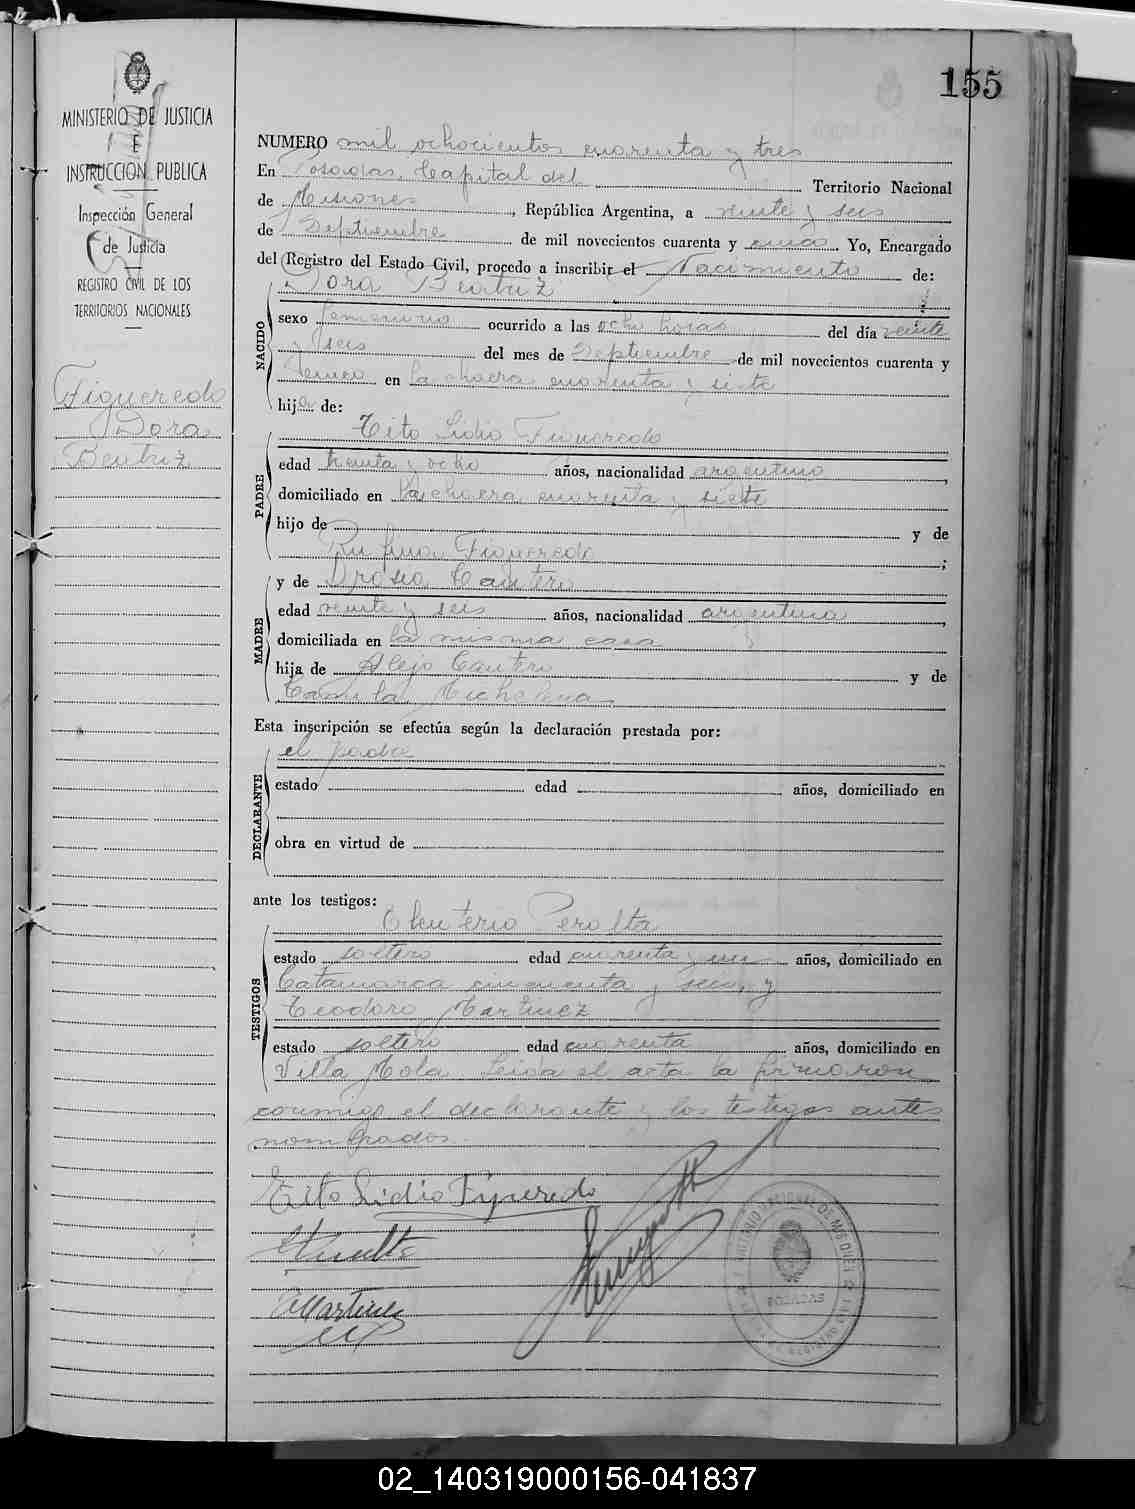 155
MINISTERIO DE JUSTICIA
E
INSTRUCCION PUBLICA
Inspección General
de Justicia
REGISTRO CIVIL DE LOS
TERRITORIOS NACIONALES
Figueredo
Dora
Beatriz
NUMERO mil ochocientos cuarenta y tres
En Posadas, Capital del Territorio Nacional
de Misiones, República Argentina, a veinte y seis
de Septiembre de mil novecientos cuarenta y cinco. Yo, Encargado
del Registro del Estado Civil, procedo a inscribir el Nacimiento de:
Dora Beatriz
NACIDO
sexo femenino ocurrido a las ocho horas del día veinte
y seis del mes de Septiembre de mil novecientos cuarenta y
cinco en la chacra cuarenta y siete
hija de:
Tito Lidio Figueredo
PADRE
edad treinta y ocho años, nacionalidad argentino,
domiciliado en la chacra cuarenta y siete
hijo de y de
Rufina Figueredo;
y de Cantero
MADRE
edad veinte y seis años, nacionalidad argentina,
domiciliada en la misma casa
hija de Alejo Cantero y de
Camila
Esta inscripción se efectúa según la declaración prestada por:
el padre
DECLARANTE
estado edad años, domiciliado en
obra en virtud de
ante los testigos:
Eleuterio Peralta
TESTIGOS
estado soltero edad cuarenta y un años, domiciliado en
Catamarca cincuenta y seis, y
Teodoro Martinez
estado soltero edad cuarenta años, domiciliado en
Villa Mola. Leida el acta la firmaron
conmigo el declarante y los testigos antes
nombrados.
Tito Lidio Figueredo
Martinez
POSADAS
02_140319000156-041837